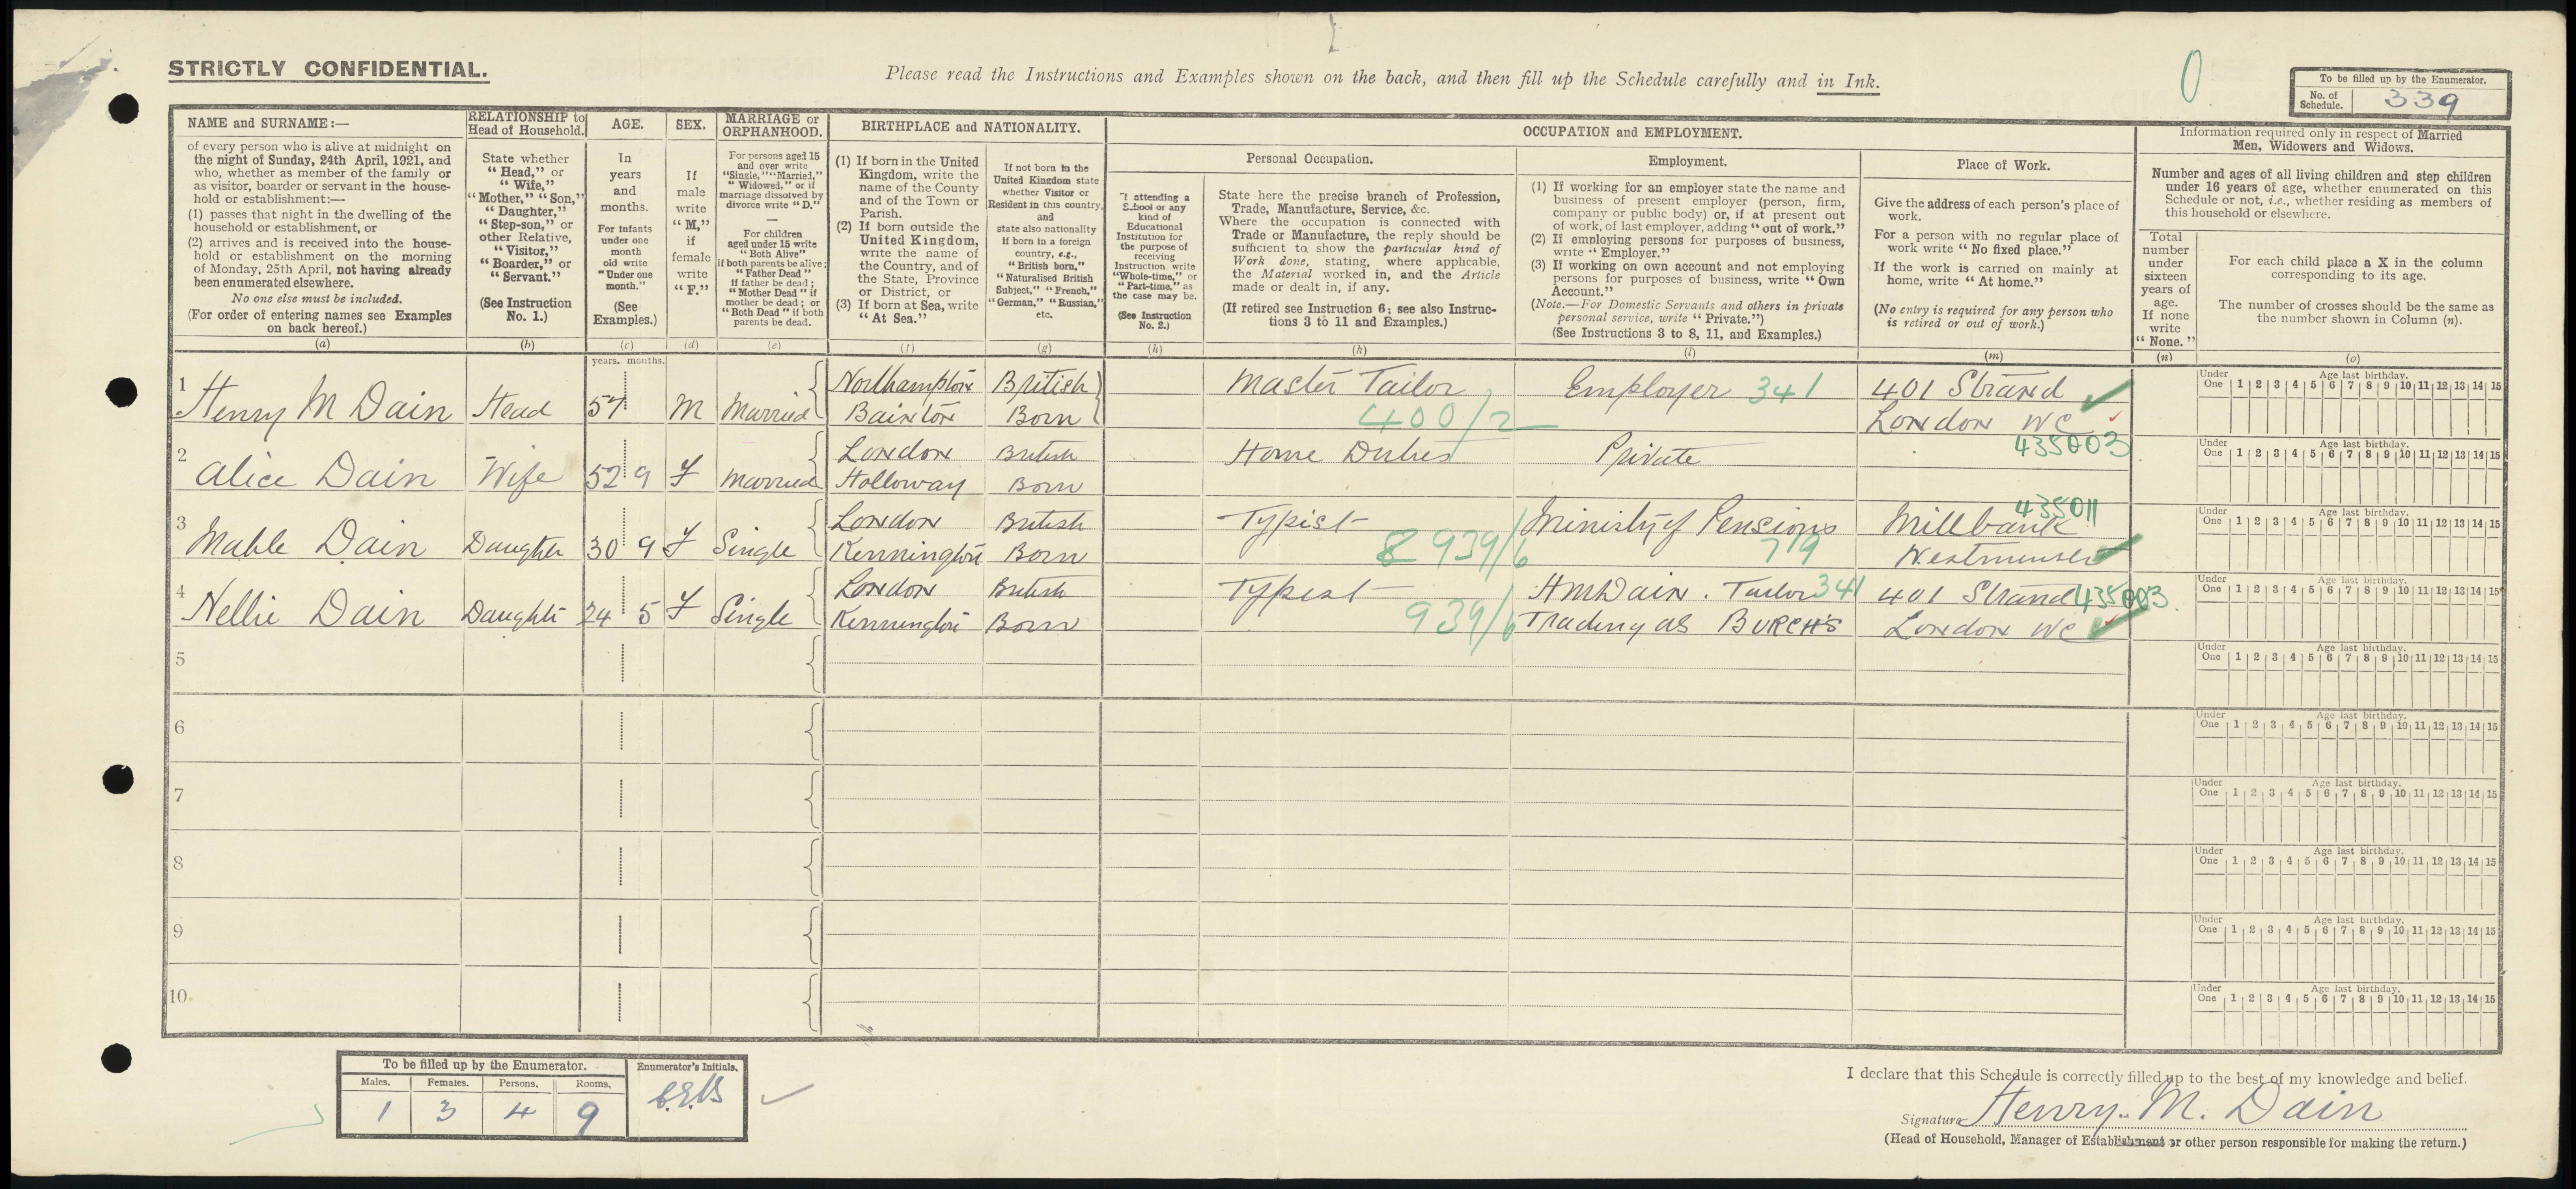 STRICTLY CONFIDENTIAL.
Please read the Instructions and Examples shown on the back, and then fill up the Schedule carefully and in Ink.
0
To be filled up by the Enumerator.
No. of Schedule. 339
NAME and SURNAME:—
of every person who is alive at midnight on
the night of Sunday, 24th April, 1921, and
who, whether as member of the family or
as visitor, boarder or servant in the house-
hold or establishment:—
(1) passes that night in the dwelling of the
household or establishment, or
(2) arrives and is received into the house-
hold or establishment on the morning
of Monday, 25th April, not having already
been enumerated elsewhere.
No one else must be included.
(For order of entering names see Examples
on back hereof.)
(a)
RELATIONSHIP to
Head of Household.
State whether
"Head," or
"Wife,"
"Mother," "Son,"
"Daughter,"
"Step-son," or
other Relative,
"Visitor,"
"Boarder," or
"Servant."
(See Instruction
No. 1.)
(b)
AGE.
In
years
and
months.
For infants
under one
month
old write
"Under one
month."
(See
Examples.)
(c)
SEX.
If
male
write
"M,"
if
female
write
"F."
(d)
MARRIAGE or
ORPHANHOOD.
For persons aged 15
and over write
"Single," "Married,"
"Widowed," or if
marriage dissolved by
divorce write "D."
—
For children
aged under 15 write
"Both Alive"
if both parents be alive;
"Father Dead"
if father be dead;
"Mother Dead" if
mother be dead; or
"Both Dead" if both
parents be dead.
(e)
BIRTHPLACE and NATIONALITY.
(1) If born in the United
Kingdom, write the
name of the County
and of the Town or
Parish.
(2) If born outside the
United Kingdom,
write the name of
the Country, and of
the State, Province
or District, or
(3) If born at Sea, write
"At Sea."
(f)
If not born in the
United Kingdom state
whether Visitor or
Resident in this country,
and
state also nationality
if born in a foreign
country, e.g.,
"British born,"
"Naturalised British
Subject," "French,"
"German," "Russian,"
etc.
(g)
OCCUPATION and EMPLOYMENT.
If attending a
School or any
kind of
Educational
Institution for
the purpose of
receiving
Instruction write
"Whole-time," or
"Part-time," as
the case may be.
(See Instruction
No. 2.)
(h)
Personal Occupation.
State here the precise branch of Profession,
Trade, Manufacture, Service, &c.
Where the occupation is connected with
Trade or Manufacture, the reply should be
sufficient to show the particular kind of
Work done, stating, where applicable,
the Material worked in, and the Article
made or dealt in, if any.
(If retired see Instruction 6; see also Instruc-
tions 3 to 11 and Examples.)
(k)
Employment.
(1) If working for an employer state the name and
business of present employer (person, firm,
company or public body) or, if at present out
of work, of last employer, adding "out of work."
(2) If employing persons for purposes of business,
write "Employer."
(3) If working on own account and not employing
persons for purposes of business, write "Own
Account."
(Note.—For Domestic Servants and others in private
personal service, write "Private.")
(See Instructions 3 to 8, 11, and Examples.)
(l)
Place of Work.
Give the address of each person's place of
work.
For a person with no regular place of
work write "No fixed place."
If the work is carried on mainly at
home, write "At home."
(No entry is required for any person who
is retired or out of work.)
(m)
Information required only in respect of Married
Men, Widowers and Widows.
Number and ages of all living children and step children
under 16 years of age, whether enumerated on this
Schedule or not, i.e., whether residing as members of
this household or elsewhere.
Total
number
under
sixteen
years of
age.
If none
write
"None."
(n)
For each child place a X in the column
corresponding to its age.
The number of crosses should be the same as
the number shown in Column (n).
(o)
years. months.
1 Henry M Dain Head 57 M Married Northampton British Master Tailor Employer 341 401 Strand
Bainton Born 400/2 London WC
435003
2 Alice Dain Wife 52 9 F Married London British Home Duties Private
Holloway Born
435011
3 Mable Dain Daughter 30 9 F Single London British Typist Ministry of Pensions Millbank
Kennington Born 8 939/6 779 Westminser
4 Nellie Dain Daughter 24 5 F Single London British Typest HMDain. Tailor 341 401 Strand 435003
Kennington Born 939/6 Trading as BURCH'S London WC
5
6
7
8
9
10
Under One Age last birthday. 1 2 3 4 5 6 7 8 9 10 11 12 13 14 15
Under One Age last birthday. 1 2 3 4 5 6 7 8 9 10 11 12 13 14 15
Under One Age last birthday. 1 2 3 4 5 6 7 8 9 10 11 12 13 14 15
Under One Age last birthday. 1 2 3 4 5 6 7 8 9 10 11 12 13 14 15
Under One Age last birthday. 1 2 3 4 5 6 7 8 9 10 11 12 13 14 15
Under One Age last birthday. 1 2 3 4 5 6 7 8 9 10 11 12 13 14 15
Under One Age last birthday. 1 2 3 4 5 6 7 8 9 10 11 12 13 14 15
Under One Age last birthday. 1 2 3 4 5 6 7 8 9 10 11 12 13 14 15
Under One Age last birthday. 1 2 3 4 5 6 7 8 9 10 11 12 13 14 15
Under One Age last birthday. 1 2 3 4 5 6 7 8 9 10 11 12 13 14 15
To be filled up by the Enumerator.
Males. Females. Persons. Rooms.
1 3 4 9
Enumerator's Initials.
I declare that this Schedule is correctly filled up to the best of my knowledge and belief.
Signature Henry. M. Dain
(Head of Household, Manager of Establishment or other person responsible for making the return.)